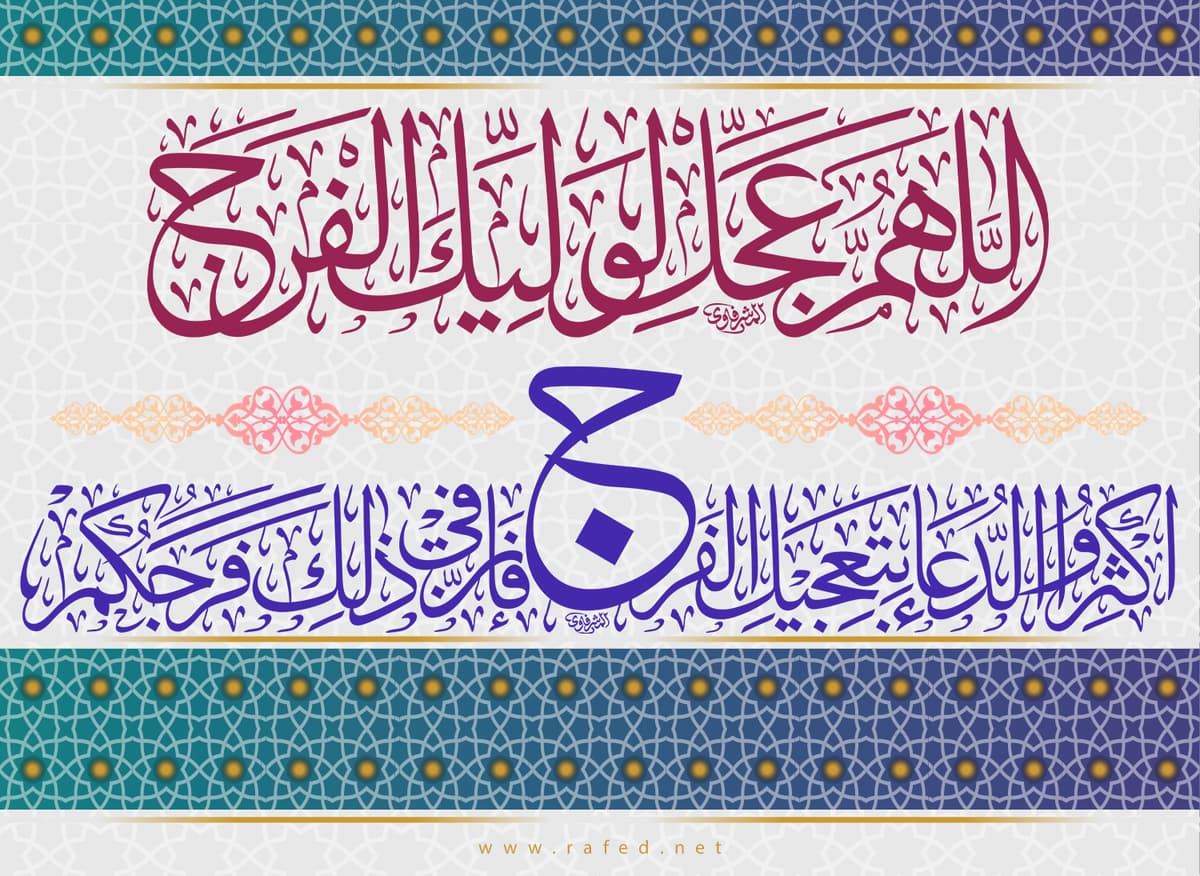 اللَّهُمَّ عَجِّل لِوَلِيِّكَ الفَرَج
الشرفاوي
اكثِرُوا الدُّعَاءَ بِتَعجِيلِ الفَرَج فَإِنَّ فِي ذلِكَ فَرَجَكُم
الشرفاوي
www.rafed.net